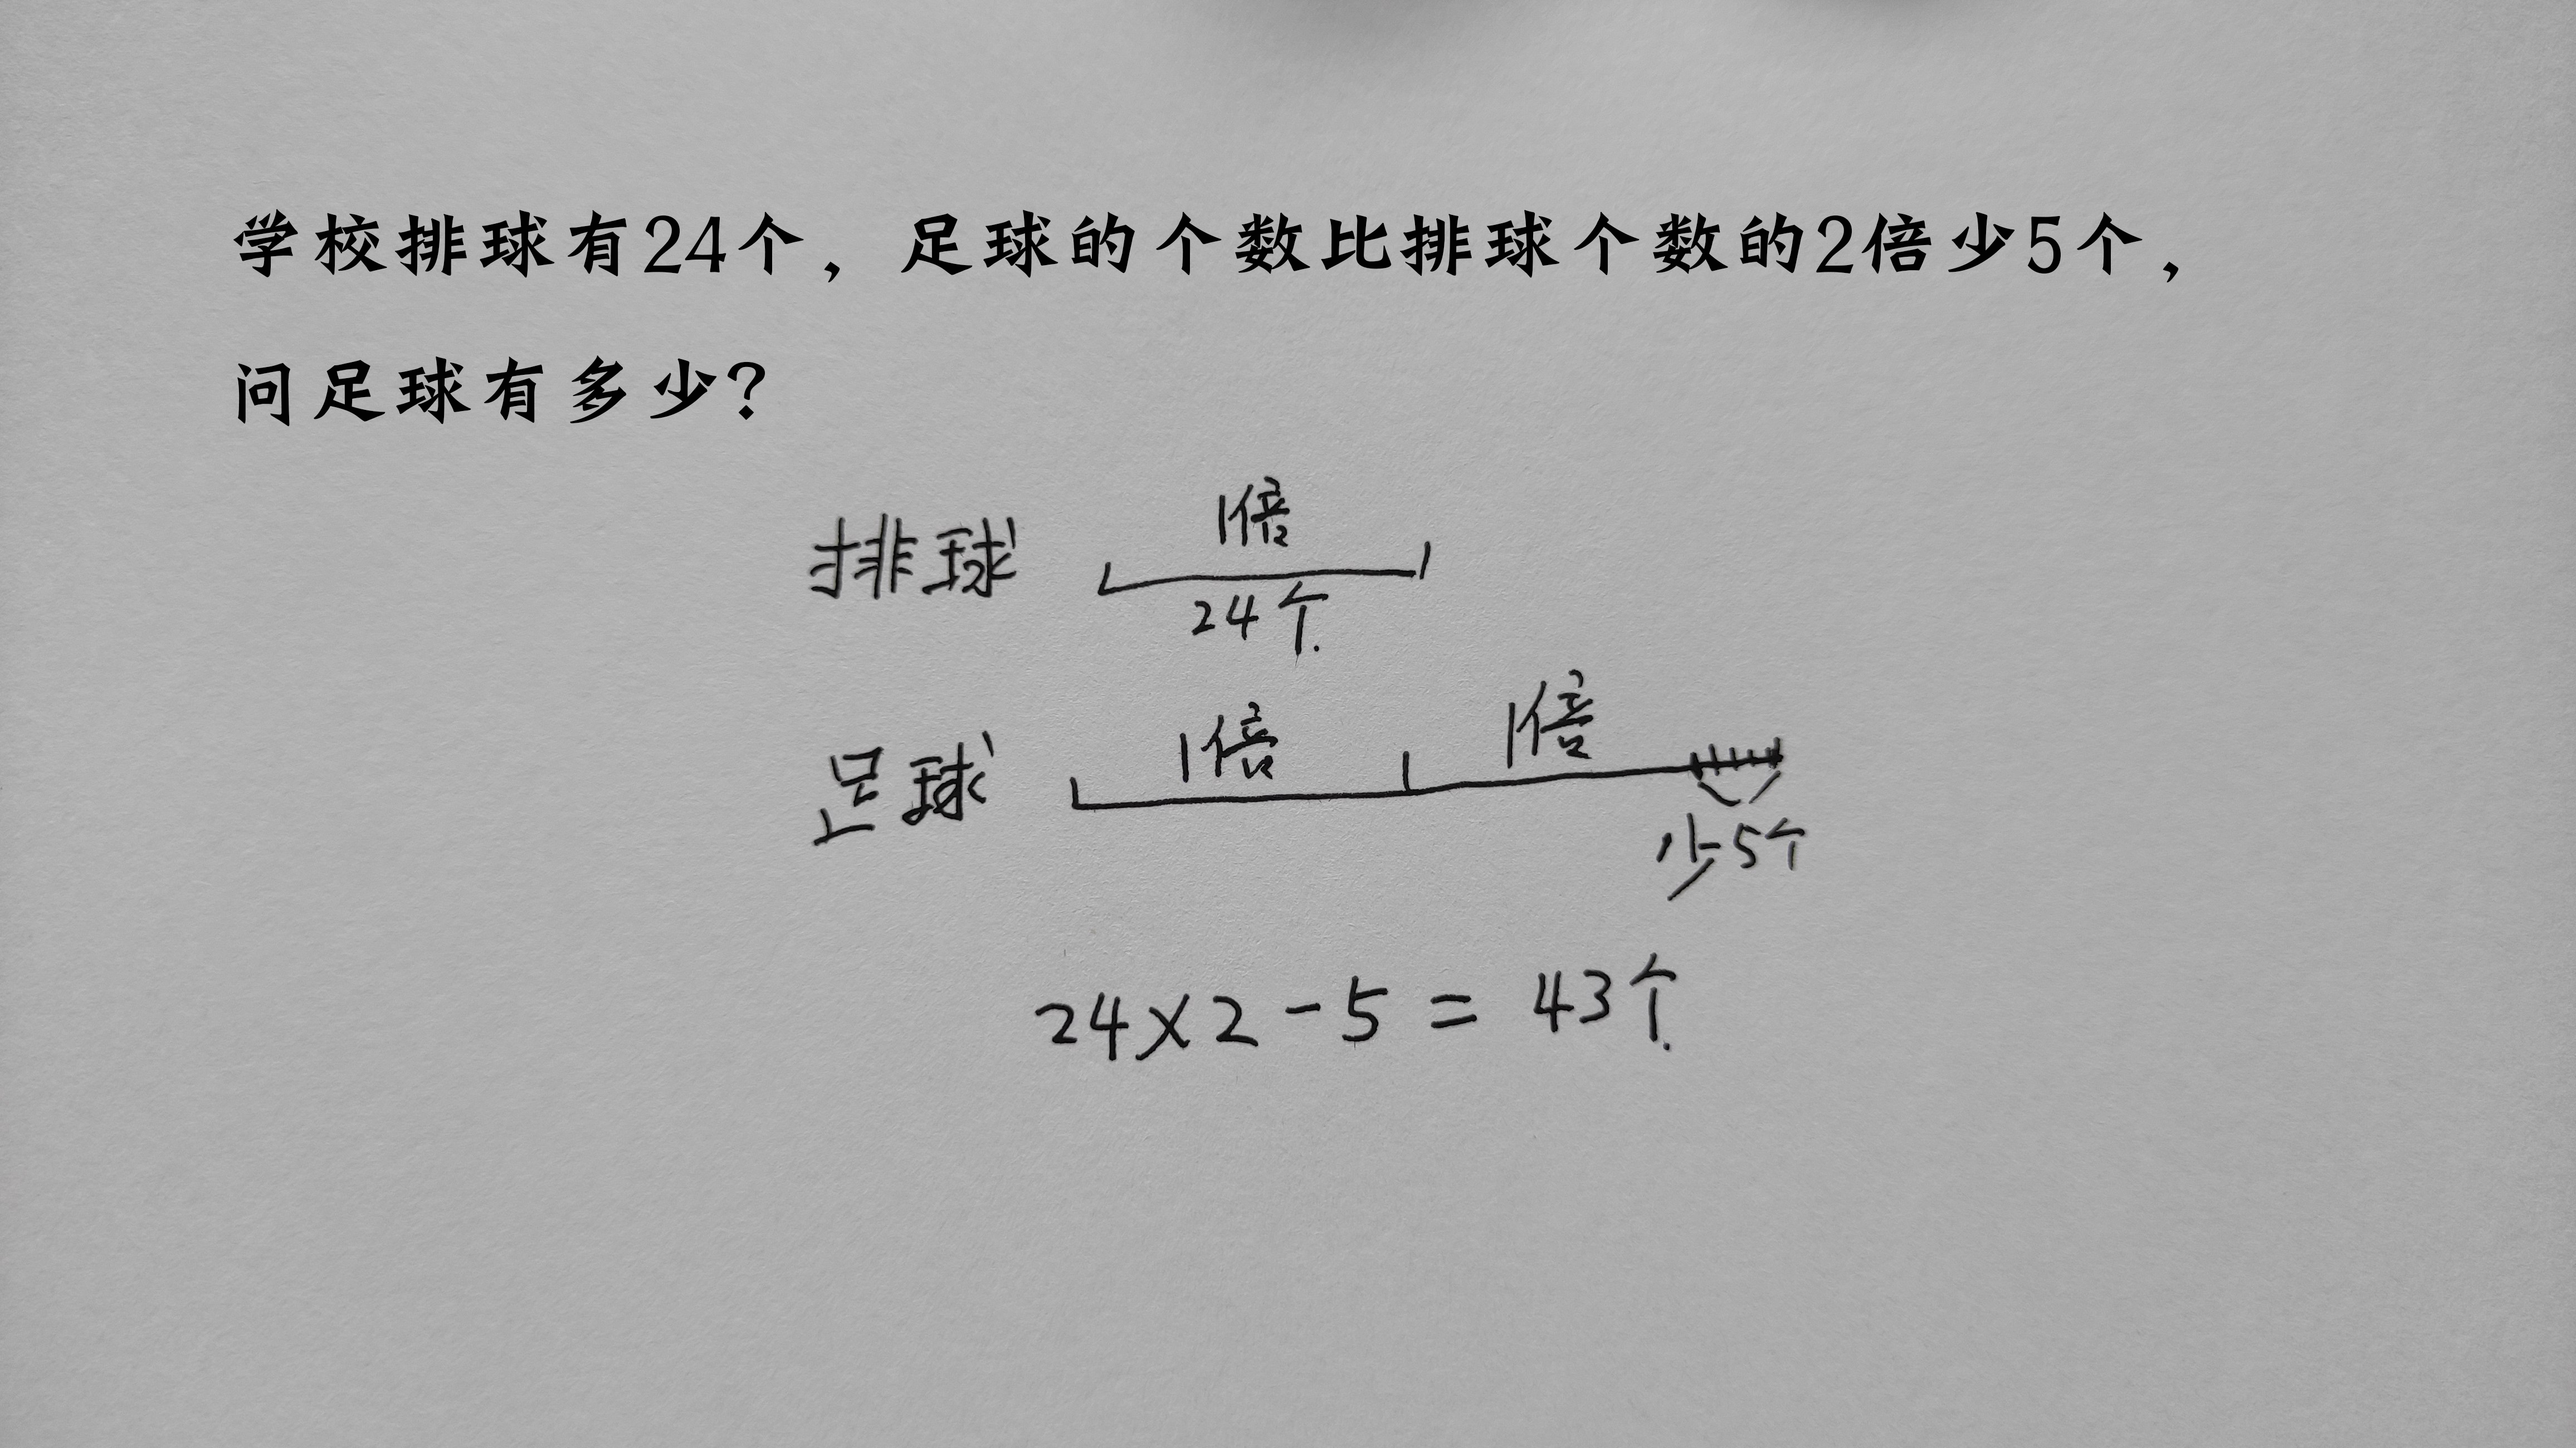 学校排球有24个，足球的个数比排球个数的2倍少5个，
问足球有多少？
1倍
排球
24个
1倍 1倍
足球
少5个
24×2-5=43个